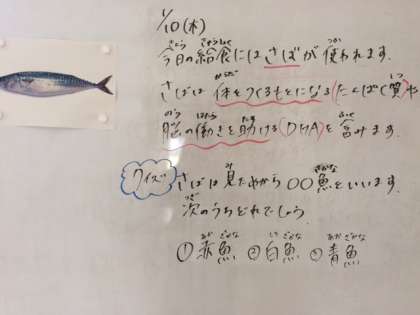 1/10(木)
今日の給食にはさばが使われます。
さばは体をつくるもとになる(たんぱく質)や
脳の働きを助ける(DHA)を含みます。
クイズ さばは見ためから〇〇魚といいます。
次のうちどれでしょう。
①赤魚 ②白魚 ③青魚